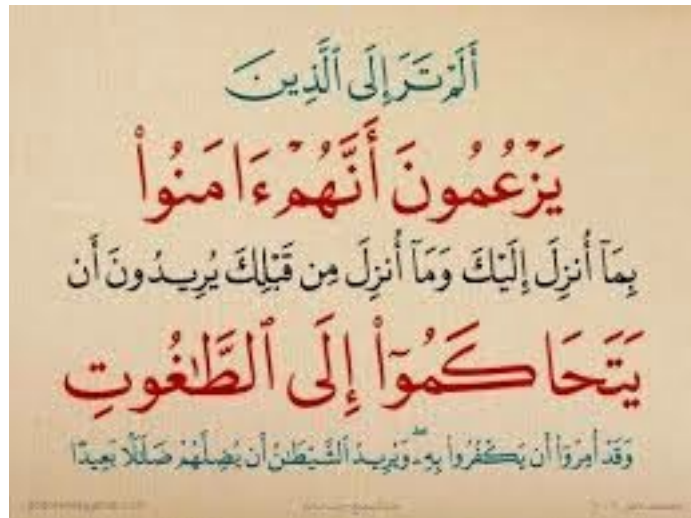 أَلَمْ تَرَ إِلَى ٱلَّذِينَ
يَزْعُمُونَ أَنَّهُمْ ءَامَنُوا۟
بِمَآ أُنزِلَ إِلَيْكَ وَمَآ أُنزِلَ مِن قَبْلِكَ يُرِيدُونَ أَن
يَتَحَاكَمُوٓا۟ إِلَى ٱلطَّٰغُوتِ
وَقَدْ أُمِرُوٓا۟ أَن يَكْفُرُوا۟ بِهِۦۖ وَيُرِيدُ ٱلشَّيْطَٰنُ أَن يُضِلَّهُمْ ضَلَٰلًۢا بَعِيدًا